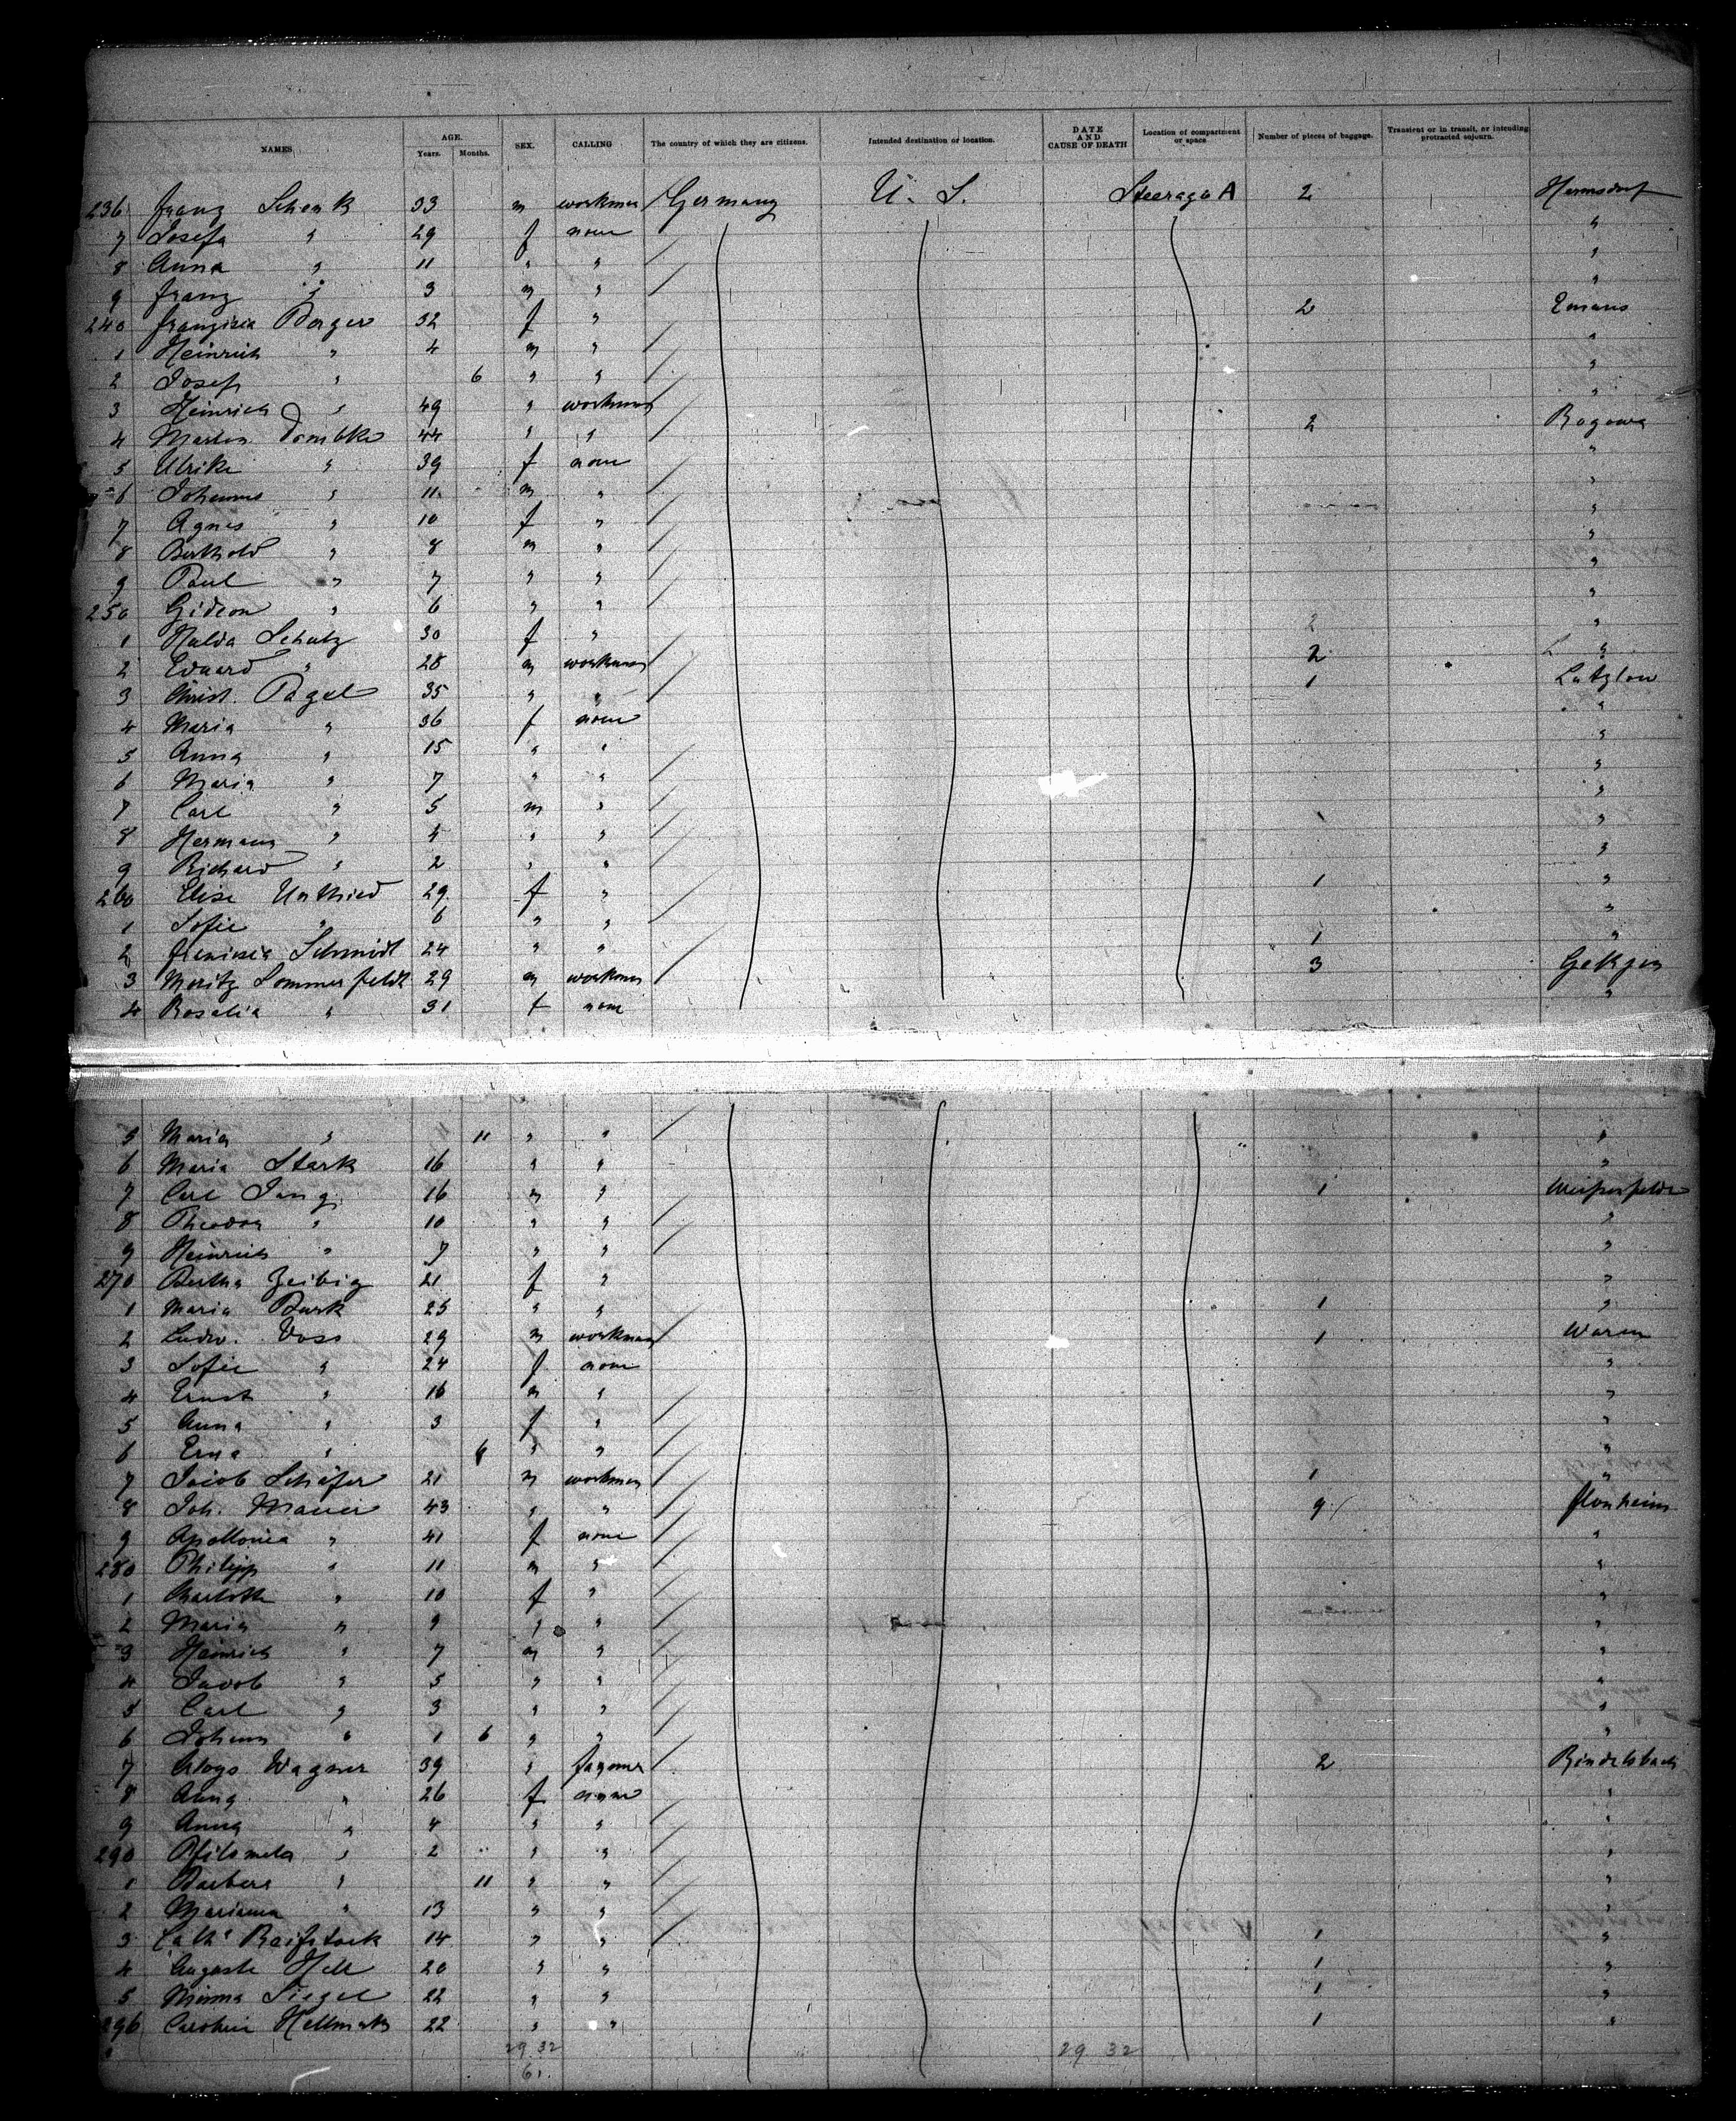 NAMES AGE. Years. Months. SEX. CALLING The country of which they are citizens. Intended destination or location. DATE AND CAUSE OF DEATH Location of compartment or space Number of pieces of baggage. Transient or in transit, or intending protracted sojourn.
236 Franz Schenk 33 m workman Germany U. S. Steerage A 2 Hermsdorf
7 Josefa " 29 f none "
8 Anna " 11 " " "
9 Franz " 3 m " "
240 Berger 32 f " 2 Emaus
1 Heinrich " 4 m " "
2 Josef " 6 " " "
3 Heinrich " 49 " workman "
4 Martin Dombke 44 " " 2 Rogowa
5 Ulrike " 39 f none "
6 Johannes " 11 m " "
7 Agnes " 10 f " "
8 Berthold " 8 m " "
9 Paul " 7 " " "
250 Gideon " 6 " " "
1 Schulz 30 f " 2 "
2 Eduard " 28 m workman 2 "
3 Christ. Pagel 35 " " 1 Latzlow
4 Maria " 36 f none "
5 Anna " 15 " " "
6 Maria " 7 " " "
7 Carl " 5 m " "
8 Hermann " 4 " " "
9 Richard " 2 " " "
260 Elise 29 f " 1 "
1 Sofie " 6 " " "
2 Schmidt 24 " " 1 "
3 Moritz Sommerfeldt 29 m workman 3
4 Rosalia " 31 f none "
5 Maria " 11 " " "
6 Maria Stark 16 " " "
7 Carl Jung 16 m " 1
8 Theodor " 10 " " "
9 Heinrich " 7 " " "
270 Bertha Zeibig 21 f " "
1 Maria Burk 25 " " 1 "
2 Ludw. Voss 29 m workman 1 Waren
3 Sofie " 24 f none "
4 Ernst " 16 m " "
5 Anna " 3 f " "
6 Erna " 6 " " "
7 Jacob Schäfer 21 m workman 1 "
8 Joh. Mauer 43 " " 9 Flonheim
9 Apollonia " 41 f none "
280 Philipp " 11 m " "
1 Charlotte " 10 f " "
2 Maria " 9 " " "
3 Heinrich " 7 m " "
4 Jacob " 5 " " "
5 Carl " 3 " " "
6 Johann " 1 6 " " "
7 Aloys Wagner 39 " 2
8 26 f none "
9 Anna " 4 " " "
290 Philomela " 2 " " "
1 Barbara " 11 " " "
2 Marianna " 13 " " "
3 Cath. 14 " " 1 "
4 Auguste Hell 20 " " 1 "
5 Minna Siegel 22 " " 1 "
296 22 " " 1 "
29 32 29 32
61.